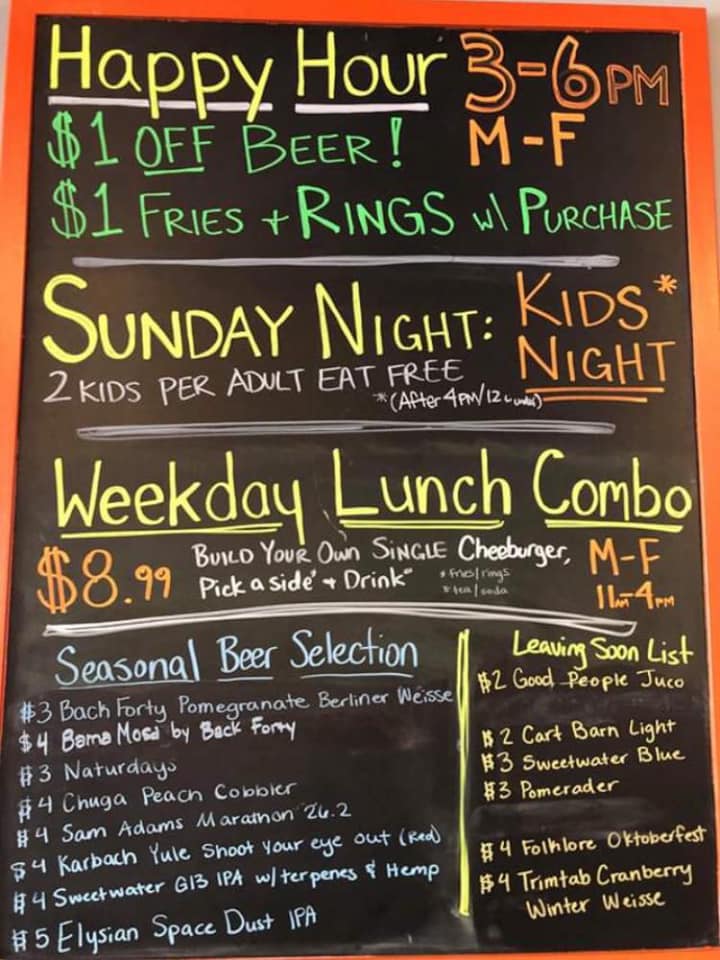 Happy Hour 3-6 PM
$1 OFF BEER! M-F
$1 FRIES + RINGS w\ PURCHASE
SUNDAY NIGHT: KIDS*
NIGHT
2 KIDS PER ADULT EAT FREE
*(After 4PM/12 & under)
Weekday Lunch Combo
$8.99 BUILD YOUR OWN SINGLE Cheeburger, M-F
Pick a side* + Drink* 11AM-4PM
*fries/rings
*tea/soda
Seasonal Beer Selection
$3 Back Forty Pomegranate Berliner Weisse
$4 Bama Mosa by Back Forty
$3 Naturdays
$4 Chuga Peach Cobbler
$4 Sam Adams Marathon 26.2
$4 Karbach Yule Shoot Your eye out (Red)
$4 Sweetwater G13 IPA w/terpenes & Hemp
$5 Elysian Space Dust IPA
Leaving Soon List
$2 Good People Juco
$2 Cart Barn Light
$3 Sweetwater Blue
$3 Pomerader
$4 Folklore Oktoberfest
$4 Trimtab Cranberry
Winter Weisse